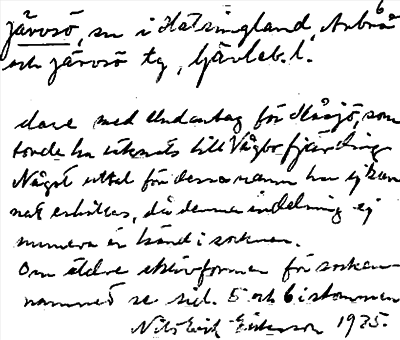 Järvsö, sn i Hälsingland, Arbrå
och Järvsö tg, Gävleb. l.
6
dare med undantag för Håsjö, som
torde ha räknats till Vågbo fjärding.
Något uttal för dessa namn har ej kun-
nat erhållas, då denna indelning ej
numera är känd i socknen.
Om äldre skrivformer för socken-
namnet se sid. 5 och 6 i stommen
Nils Erik 1925.